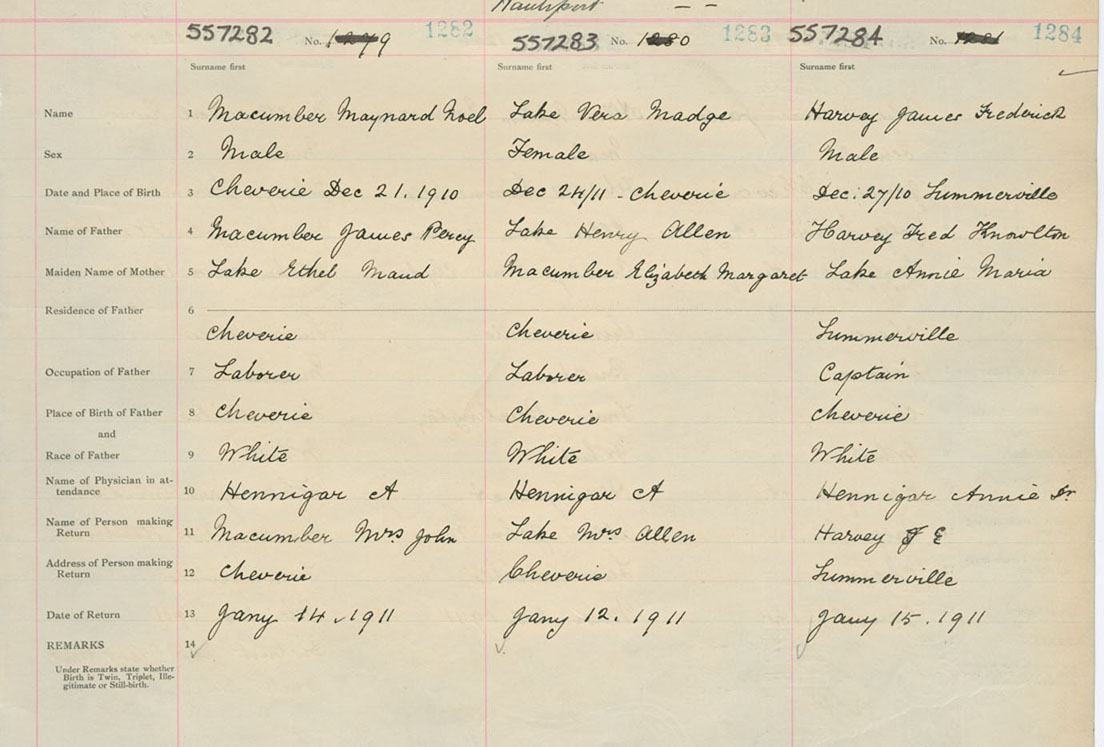 Hantsport — —
557282 No. 1279 1282 557283 No. 1280 1283 557284 No. 1281 1284
Surname first Surname first Surname first
Name 1 Macumber Maynard Noel Lake Vera Madge Harvey James Frederick
Sex 2 Male Female Male
Date and Place of Birth 3 Cheverie Dec 21. 1910 Dec 24/11 - Cheverie Dec. 27/10 Summerville
Name of Father 4 Macumber James Percy Lake Henry Allen Harvey Fred Knowlton
Maiden Name of Mother 5 Lake Ethel Maud Macumber Elizabeth Margaret Lake Annie Maria
Residence of Father 6
Cheverie Cheverie Summerville
Occupation of Father 7 Laborer Laborer Captain
Place of Birth of Father 8 Cheverie Cheverie Cheverie
and
Race of Father 9 White White White
Name of Physician in at-
tendance 10 Hennigar A Hennigar A Hennigar Annie Dr
Name of Person making
Return 11 Macumber Mrs John Lake Mrs Allen Harvey F E
Address of Person making
Return 12 Cheverie Cheverie Summerville
Date of Return 13 Jany 14. 1911 Jany 12. 1911 Jany 15. 1911
REMARKS 14
Under Remarks state whether
Birth is Twin, Triplet, Ille-
gitimate or Still-birth.